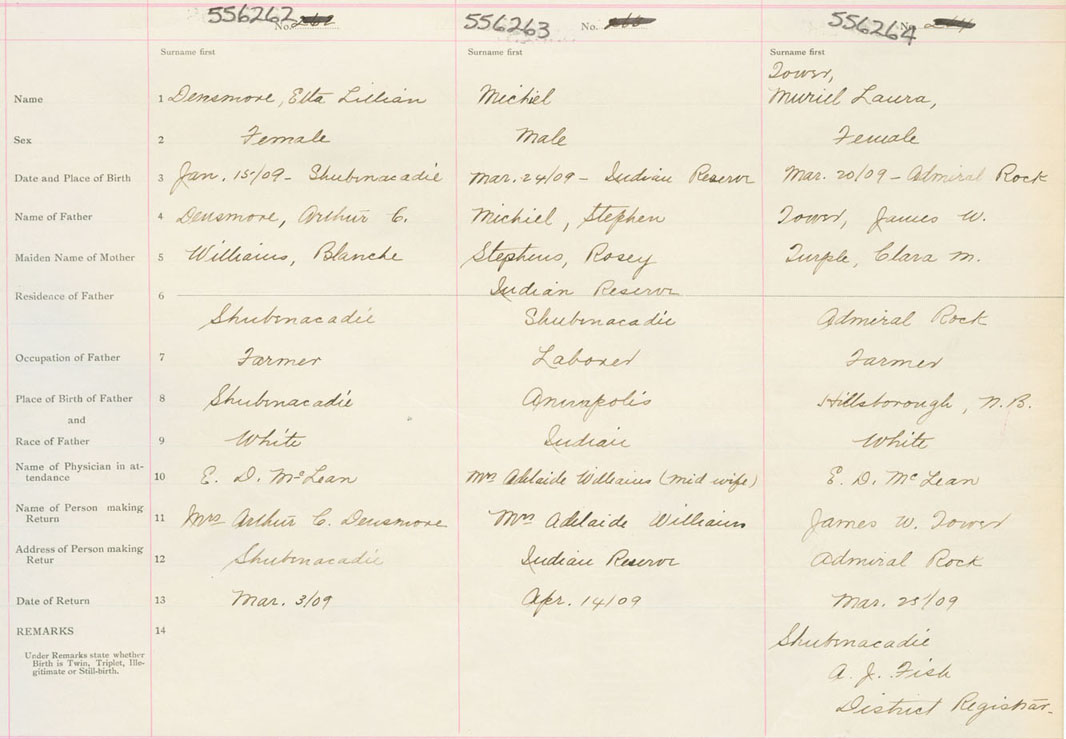 556262 No. 556263 No. 556264 No.
Surname first Surname first Surname first
Tower,
Name 1 Densmore, Etta Lillian Michiel Muriel Laura,
Sex 2 Female Male Female
Date and Place of Birth 3 Jan. 15/09 - Shubenacadie Mar. 24/09 - Indian Reserve Mar. 20/09 - Admiral Rock
Name of Father 4 Densmore, Arthur C. Michiel, Stephen Tower, James W.
Maiden Name of Mother 5 Williams, Blanche Stephens, Rosey Turple, Clara M.
Residence of Father 6 Indian Reserve
Shubenacadie Shubenacadie Admiral Rock
Occupation of Father 7 Farmer Laborer Farmer
Place of Birth of Father 8 Shubenacadie Annapolis Hillsborough, N.B.
and
Race of Father 9 White Indian White
Name of Physician in at-
tendance 10 E. D. McLean Mrs Adelaide Williams (mid wife) E. D. McLean
Name of Person making
Return 11 Mrs Arthur C. Densmore Mrs Adelaide Williams James W. Tower
Address of Person making
Retur 12 Shubenacadie Indian Reserve Admiral Rock
Date of Return 13 Mar. 3/09 Apr. 14/09 Mar. 25/09
REMARKS 14
Shubenacadie
Under Remarks state whether
Birth is Twin, Triplet, Ille-
gitimate or Still-birth.
A. J. Fish
District Registrar.